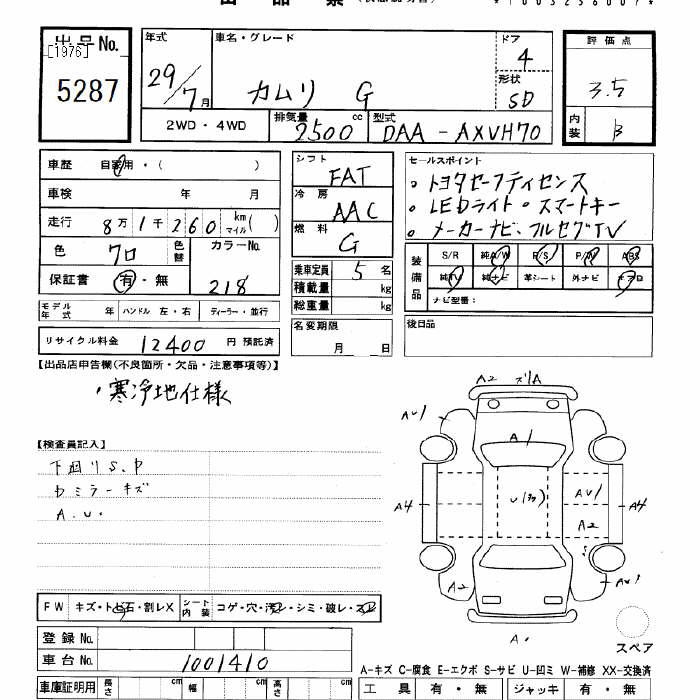 出品票
*1003256007*
出品No.
[1976]
5287
年式
29/7月
車名・グレード
カムリ G
ドア
4
形状
SD
2WD・4WD
排気量
2500cc
型式
DAA-AXVH70
評価点
3.5
内装
B
車歴 自家用・( )
車検 年 月
走行 8万1千260 km マイル( )
色 クロ 色替
カラーNo.
218
保証書 有・無
モデル年式 年 ハンドル 左・右 ディーラー・並行
リサイクル料金 12400 円 預託済
シフト
FAT
冷房
AAC
燃料
G
乗車定員 5名
積載量 kg
総重量 kg
名変期限
月 日
セールスポイント
。トヨタセーフティセンス
。LEDライト・スマートキー
。メーカーナビ、フルセグTV
装備品
S/R 純A/W P/S P/W ABS
純TV 純ナビ 革シート 外ナビ エアロ
ナビ型番:
後日品
【出品店申告欄(不良箇所・欠品・注意事項等)】
・寒冷地仕様
【検査員記入】
下回りS.P
ミラーキズ
A.U.
FW キズ・トビ石・割レX シート内装 コゲ・穴・汚レ・シミ・破レ・スレ
登録No.
車台No. 1001410
車庫証明用 長さ cm 幅 cm 高さ cm
A2 ズリA
AU1
A1
A4
U(ﾜ)
AU1
A2
A4
S
A2
AU1
A.
スペア
A-キズ C-腐食 E-エクボ S-サビ U-凹ミ W-補修 XX-交換済
工具 有・無 ジャッキ 有・無